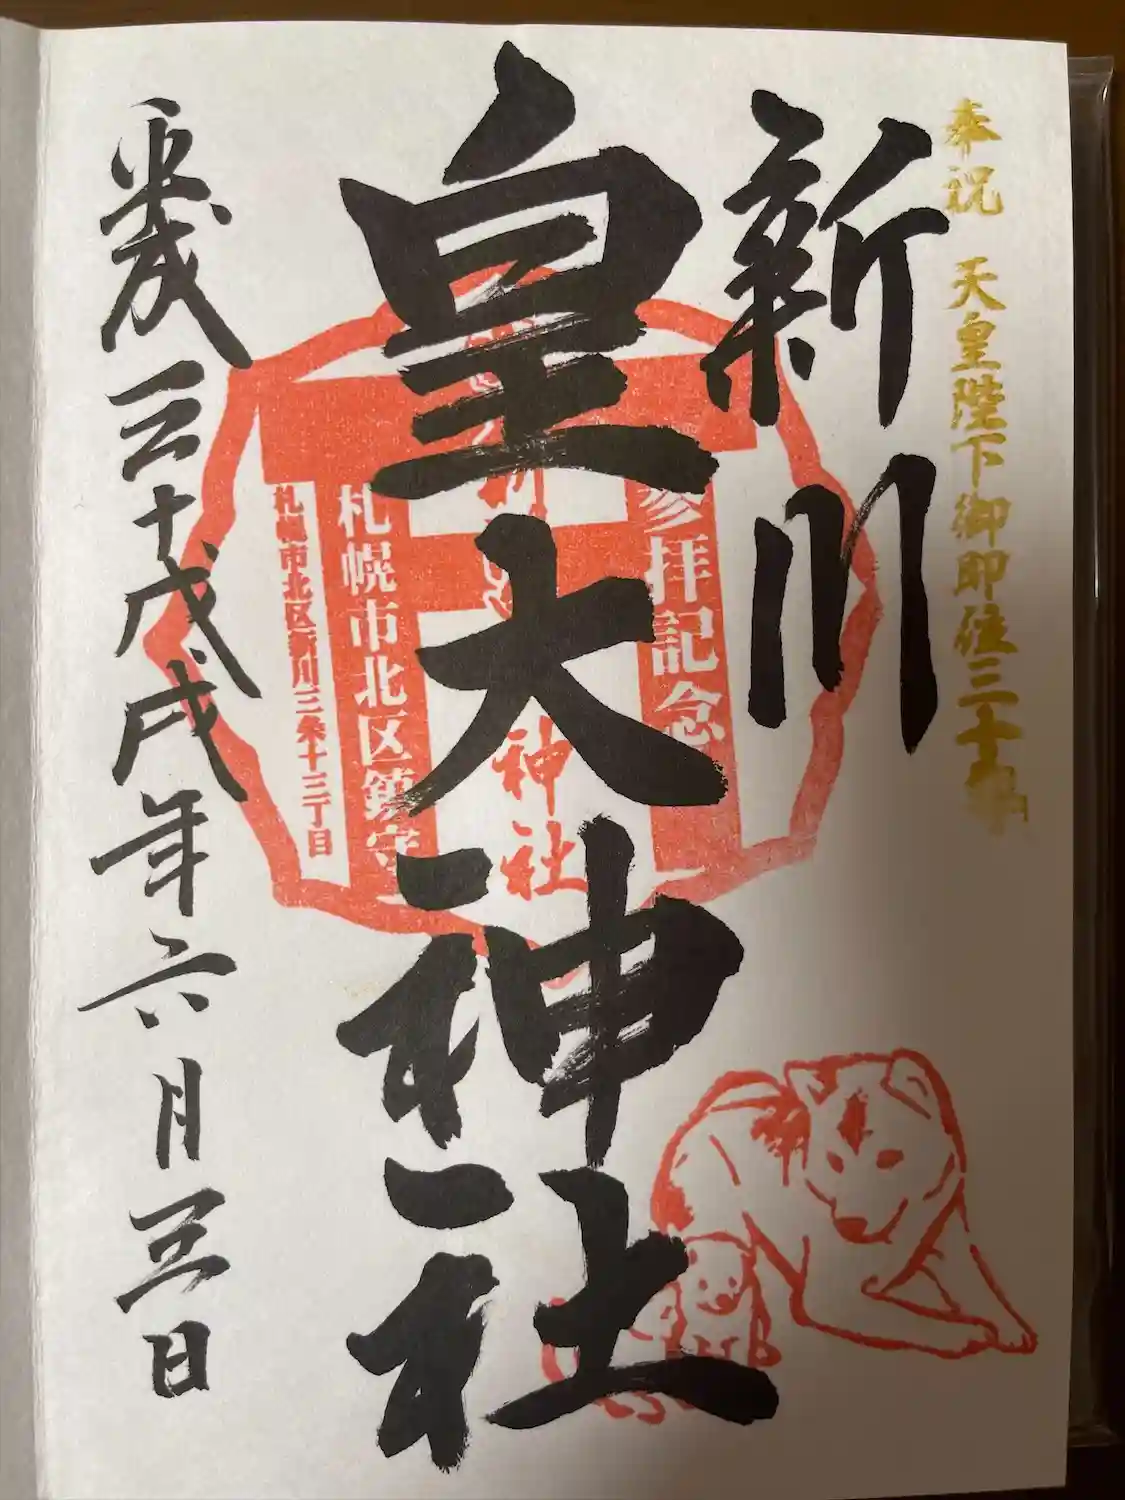 奉祝 天皇陛下御即位三十年
新川
皇大神社
参拝記念
神社
札幌市北区鎮守
札幌市北区新川三条十三丁目
平成三十戊戌年六月三日